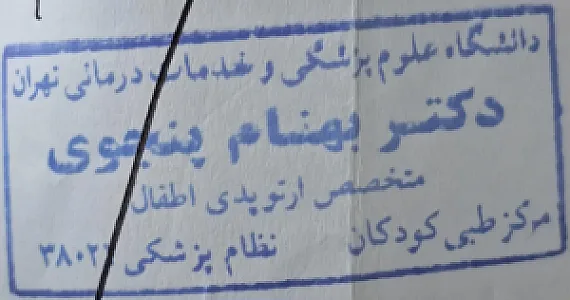 دانشگاه علوم پزشکی و خدمات درمانی تهران
دکتر بهنام پنجوی
متخصص ارتوپدی اطفال
مرکز طبی کودکان نظام پزشکی